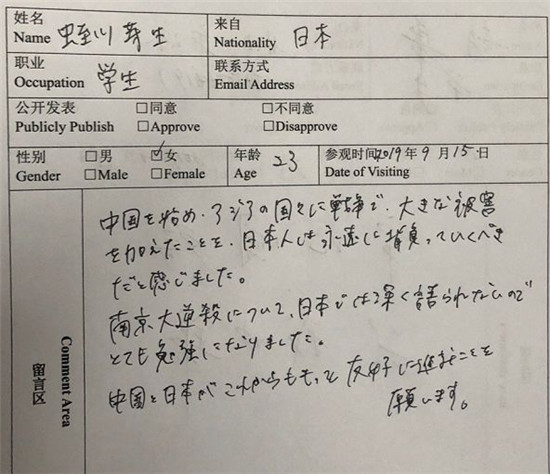 姓名 来自
Name 蛭川 芽生 Nationality 日本
职业 联系方式
Occupation 学生 Email Address
公开发表 □同意 □不同意
Publicly Publish □Approve □Disapprove
性别 □男 ☑女 年龄 参观时间 2019年9月15日
Gender □Male □Female Age 23 Date of Visiting
中国を始め、アジアの国々に戦争で、大きな被害
を加えたことを、日本人は永遠に背負っていくべき
だと感じました。
南京大逆殺について、日本では深く語られないので
とても勉強になりました。
中国と日本がこれからももっと友好に進むことを
願います。
留言区
Comment Area